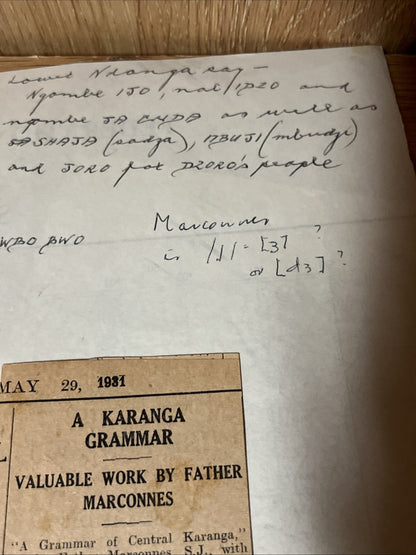 Lower Ndanga say —
Ngombe IJO, not IDZO and
ngombe JA CUDA as well as
JASHAJA (sadza), MBUJI (mbudzi)
and JORO for DZORO's people
WBO BWO
Marconnes
is /J/ = [ʒ] ?
or [dʒ] ?
MAY 29, 1931
A KARANGA
GRAMMAR
VALUABLE WORK BY FATHER
MARCONNES
"A Grammar of Central Karanga,"
Marconnes, S.J., with